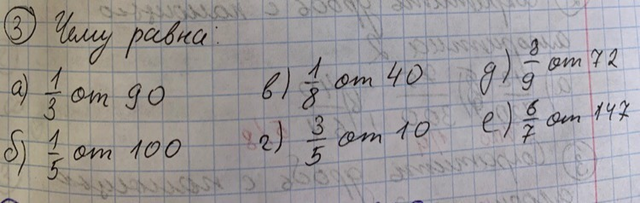 3 Чему равна:
а) 1/3 от 90
б) 1/5 от 100
в) 1/8 от 40
г) 3/5 от 10
д) 8/9 от 72
е) 6/7 от 147